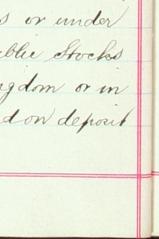 s or under
ublic Stocks
ngdom or in
d on deposit